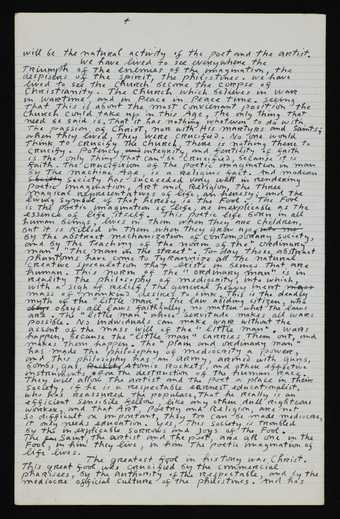 4
will be the natural activity of the poet and the artist.
We have lived to see everywhere the
Triumph of the enemies of the imagination, the
despisers of the spirit, the philistines. We have
lived to see the Church become the corpse of
Christianity. The Church which believes in War
in wartime, and in Peace in Peace time. Seeing
that this is about the most convenient position the
Church could take up in this Age, the only thing that
need be said is, that it has nothing whatever to do with
the passion of Christ, nor with His martyrs and Saints,
when they lived. They were crucified. No one would
think to crucify the Church, there is nothing there to
crucify. Potency and intensity and fertility of faith
is the only thing that can be crucified, because it is
faith. The crucifixion of the poetic imagination in man
by the machine Age, is a religious fact. And modern
society has succeeded very well in rendering
poetic imagination, Art and Religion, the three
magical representatives of life, as heresy; and the
living symbol of that heresy is the Fool. The Fool
is the poetic imagination of life, as inexplicable as the
essence of life itself. This poetic life born in all
human beings, lives in them when they are children,
but it is killed in them when they grow up
by the abstract mechanisation of contemporary society,
and by the teaching of the norm of the "ordinary
man", "the man in the street". In play these abstract
phantoms have come to tyrannise all the natural
creative spontaneity that exists in senses that are
human. This norm of the "ordinary man" is in
reality the philosophy of mediocrity, into which,
with a sigh of relief, the general heavy inert
mass of mankind desires to sink. This is the deadly
myth of the "little man". The law abiding citizen, who
obeys all laws faithfully, no matter what the laws
are. The "little man" whose servitude makes all wars
possible. No individual can make war without the
assent of the mass will of the "little man". Wars
happen, because the "little man" carries them out, and
makes them happen. The "plain and ordinary man"
has made the philosophy of mediocrity a power,
and this philosophy has an army, armed with guns,
bombs, gas, atomic rockets, and other effective
instruments, for the destruction of the human race.
They will allow the artist and the poet a place in their
society, if he is a respectable earnest educationalist,
who has reassured the populace, that he really is an
efficient sensible fellow like any other dull righteous
worker, and that Art, Poetry and Religion, are not
so difficult or important, they too can be made mediocre,
it only needs education. Yes, this Society is troubled
by the inexplicable sorrows and joys of the Fool.
The Saint, the artist and the poet, are all one in the
Fool, in him they live, in him the poetic imagination of
life lives.
The greatest Fool in history was Christ.
This great Fool was crucified by the commercial
pharisees, by the authority of the respectable, and by the
mediocre official culture of the philistines. And has